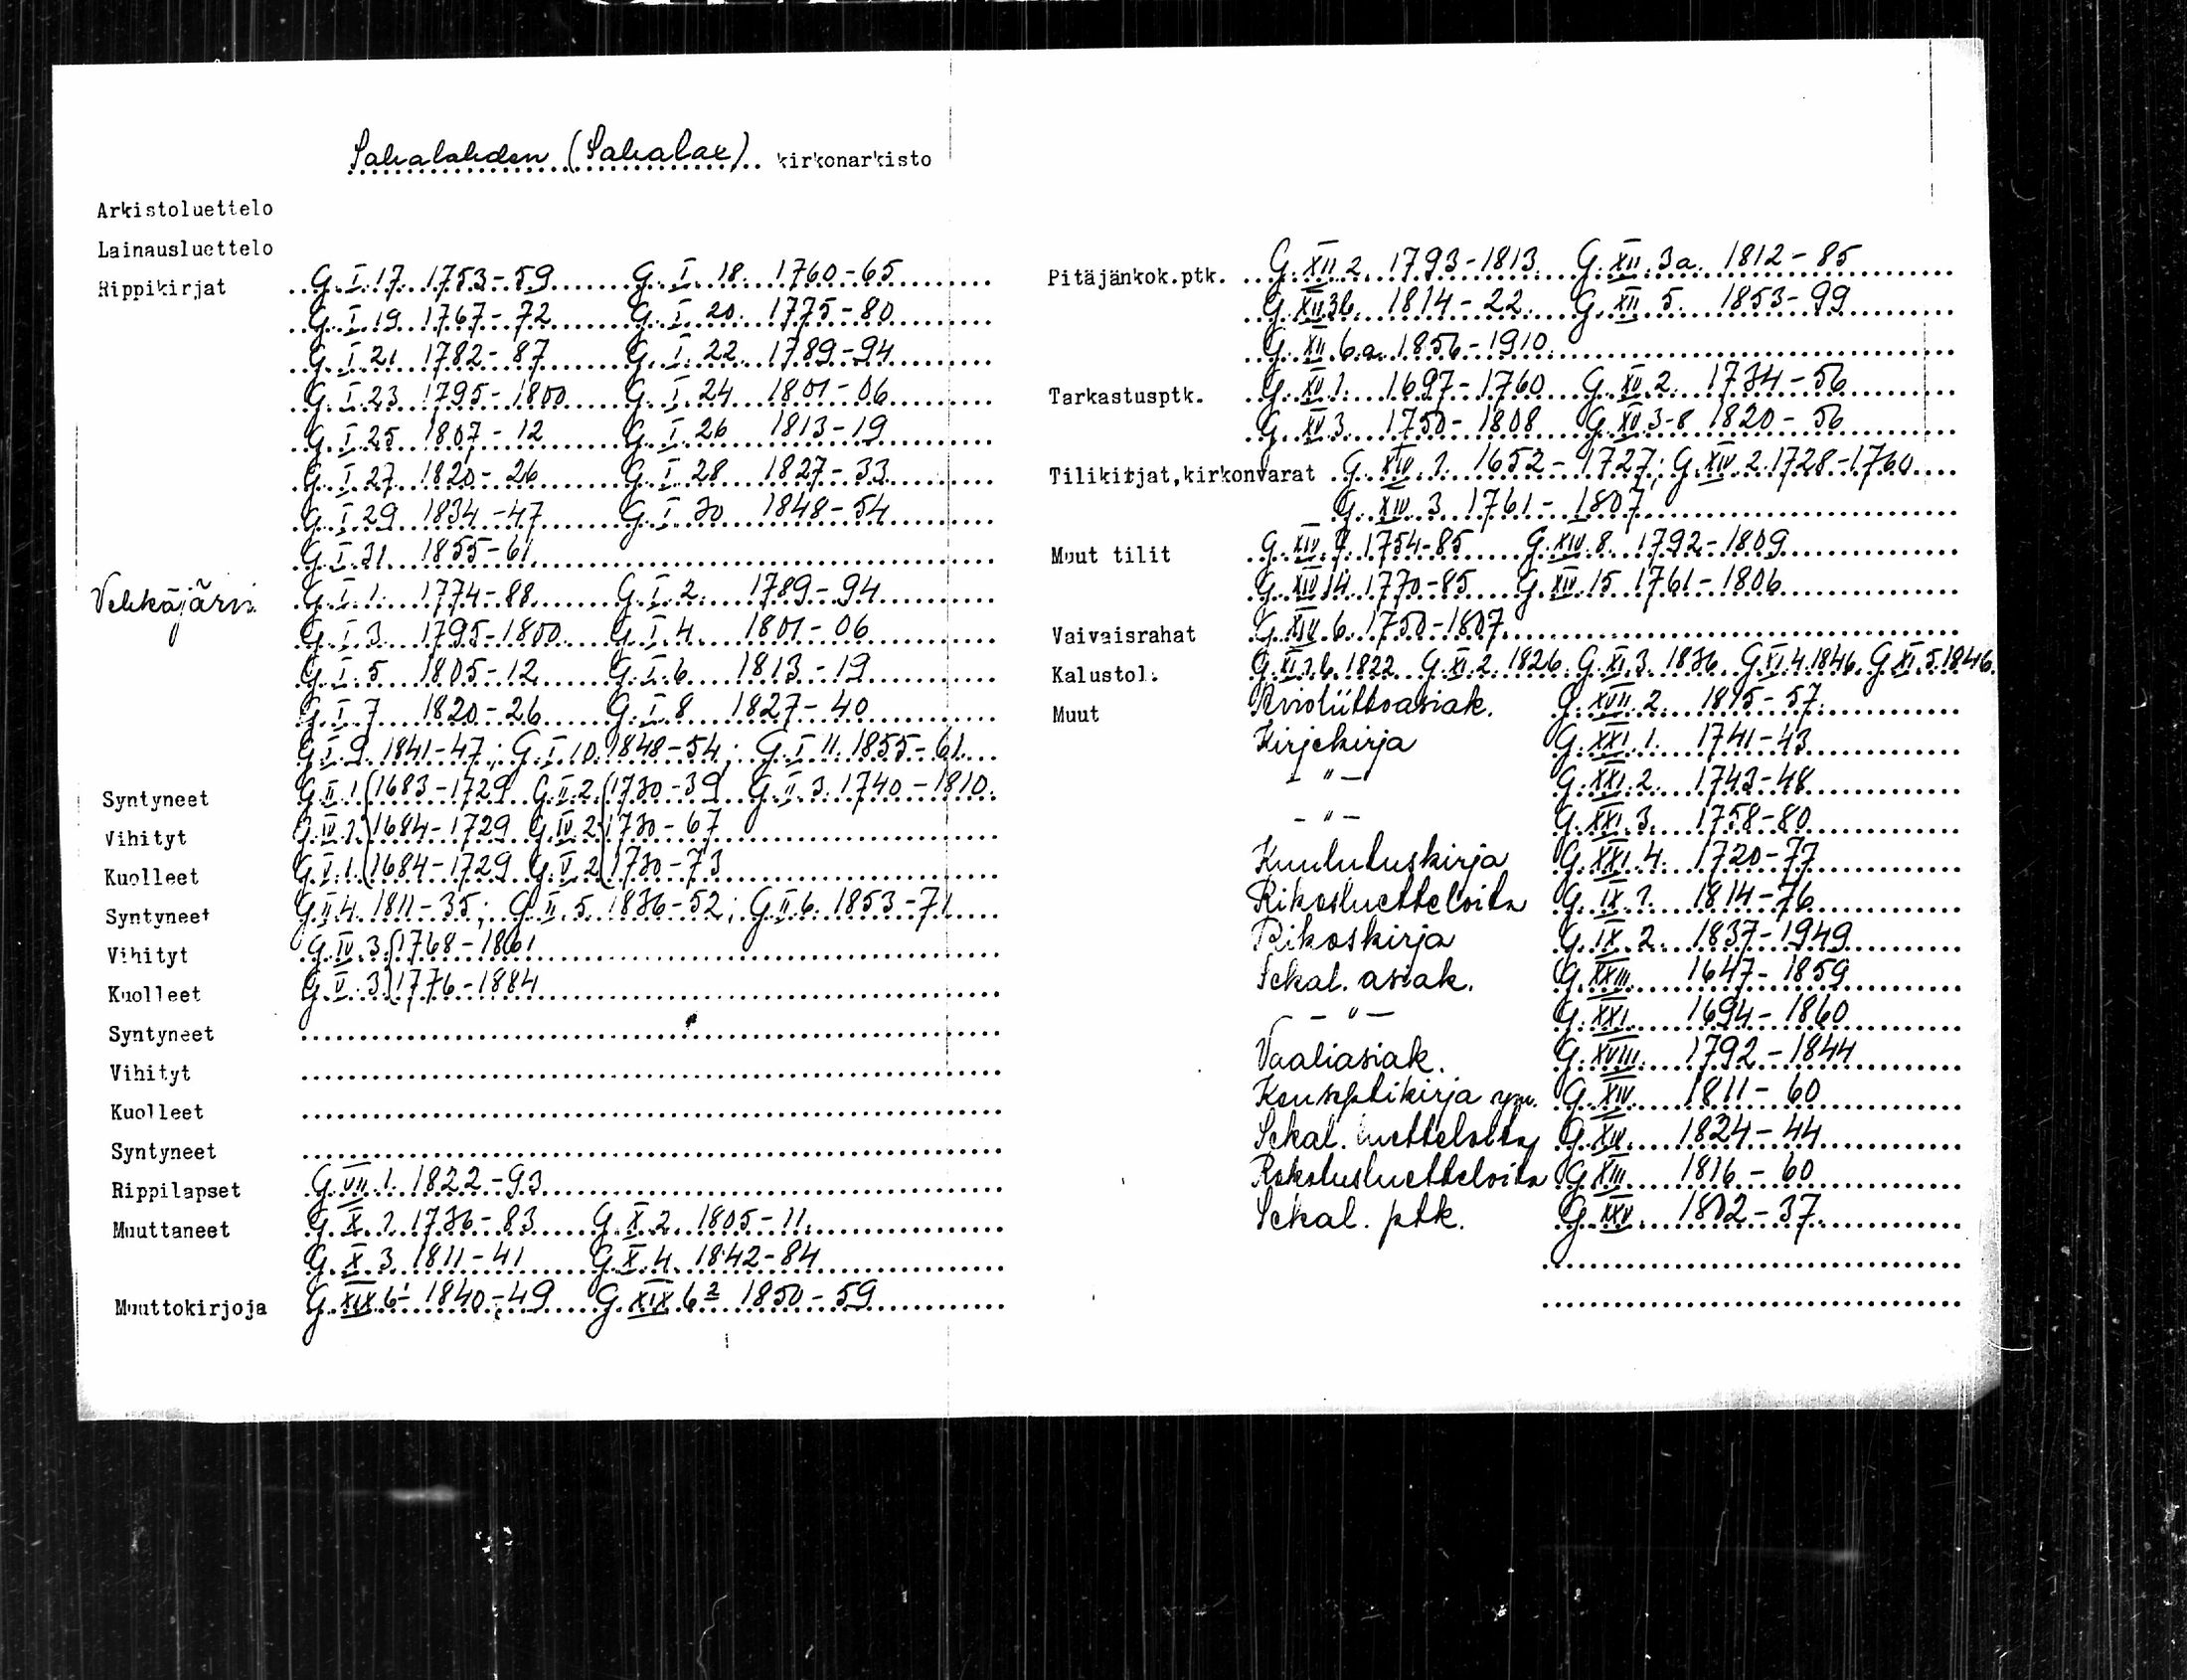 Sahalahden (Sahalax) kirkonarkisto
Arkistoluettelo
Lainausluettelo
Rippikirjat G.I.17. 1753-59 G.I.18. 1760-65
G.I.19 1767-72 G.I.20. 1775-80
G.I.21 1782-87 G.I.22. 1789-94
G.I.23 1795-1800 G.I.24 1801-06
G.I.25 1807-12 G.I.26 1813-19
G.I.27 1820-26 G.I.28 1827-33
G.I.29 1834-47 G.I.30 1848-54
G.I.31 1855-61
Vehkäjärvi G.I.1. 1774-88 G.I.2. 1789-94
G.I.3. 1795-1800 G.I.4. 1801-06
G.I.5 1805-12 G.I.6 1813-19
G.I.7 1820-26 G.I.8 1827-40
G.I.9. 1841-47; G.I.10. 1848-54; G.I.11. 1855-61.
Syntyneet G.II.1. 1683-1729 G.II.2. 1730-39 G.II.3. 1740-1810.
Vihityt G.IV.1. 1684-1729 G.IV.2. 1730-67
Kuolleet G.V.1. 1684-1729 G.V.2. 1730-73
Syntyneet G.II.4. 1811-35; G.II.5. 1836-52; G.II.6. 1853-71
Vihityt G.IV.3. 1768-1861
Kuolleet G.V.3. 1776-1884
Syntyneet
Vihityt
Kuolleet
Syntyneet
Rippilapset G.VII.1. 1822-93
Muuttaneet G.X.1. 1736-83 G.X.2. 1805-11.
G.X.3. 1811-41 G.X.4. 1842-84
Muuttokirjoja G.XIX.6¹ 1840-49 G.XIX.6² 1850-59
Pitäjänkok.ptk. G.XII.2. 1793-1813. G.XII.3a. 1812-85
G.XII.3b. 1814-22. G.XII.5. 1853-99
G.XII.6.a. 1856-1910.
Tarkastusptk. G.XV.1. 1697-1760 G.XV.2. 1734-56
G.XV.3. 1750-1808 G.XV.3-8 1820-56
Tilikirjat,kirkonvarat G.XIV.1. 1652-1727; G.XIV.2. 1728-1760
G.XIV.3 1761-1807
Muut tilit G.XIV.7. 1754-85 G.XIV.8. 1792-1809
G.XIV.14. 1770-85 G.XIV.15 1761-1806
Vaivaisrahat G.XIV.6. 1750-1807
Kalustol. G.XI.1.b. 1822 G.XI.2. 1826. G.XI.3. 1836. G.XI.4. 1846. G.XI.5. 1846.
Muut Avioliittoasiak. G.XVII.2. 1815-57.
Kirjekirja G.XXI.1. 1741-43
-"- G.XXI.2. 1743-48
-"- G.XXI.3. 1758-80
Kuulutuskirja G.XXI.4. 1720-77
Rikosluetteloita G.IX.1. 1814-76
Rikoskirja G.IX.2. 1837-1949
Sekal. asiak. G.XXIII. 1647-1859
-"- G.XXI. 1694-1860
Vaaliasiak. G.XVIII. 1792-1844
Konseptikirja ym. G.XIV. 1811-60
Sekal. luetteloita G.XIV. 1824-44
Rokotusluetteloita G.XIII. 1816-60
Sekal. ptk. G.XXV. 1802-37